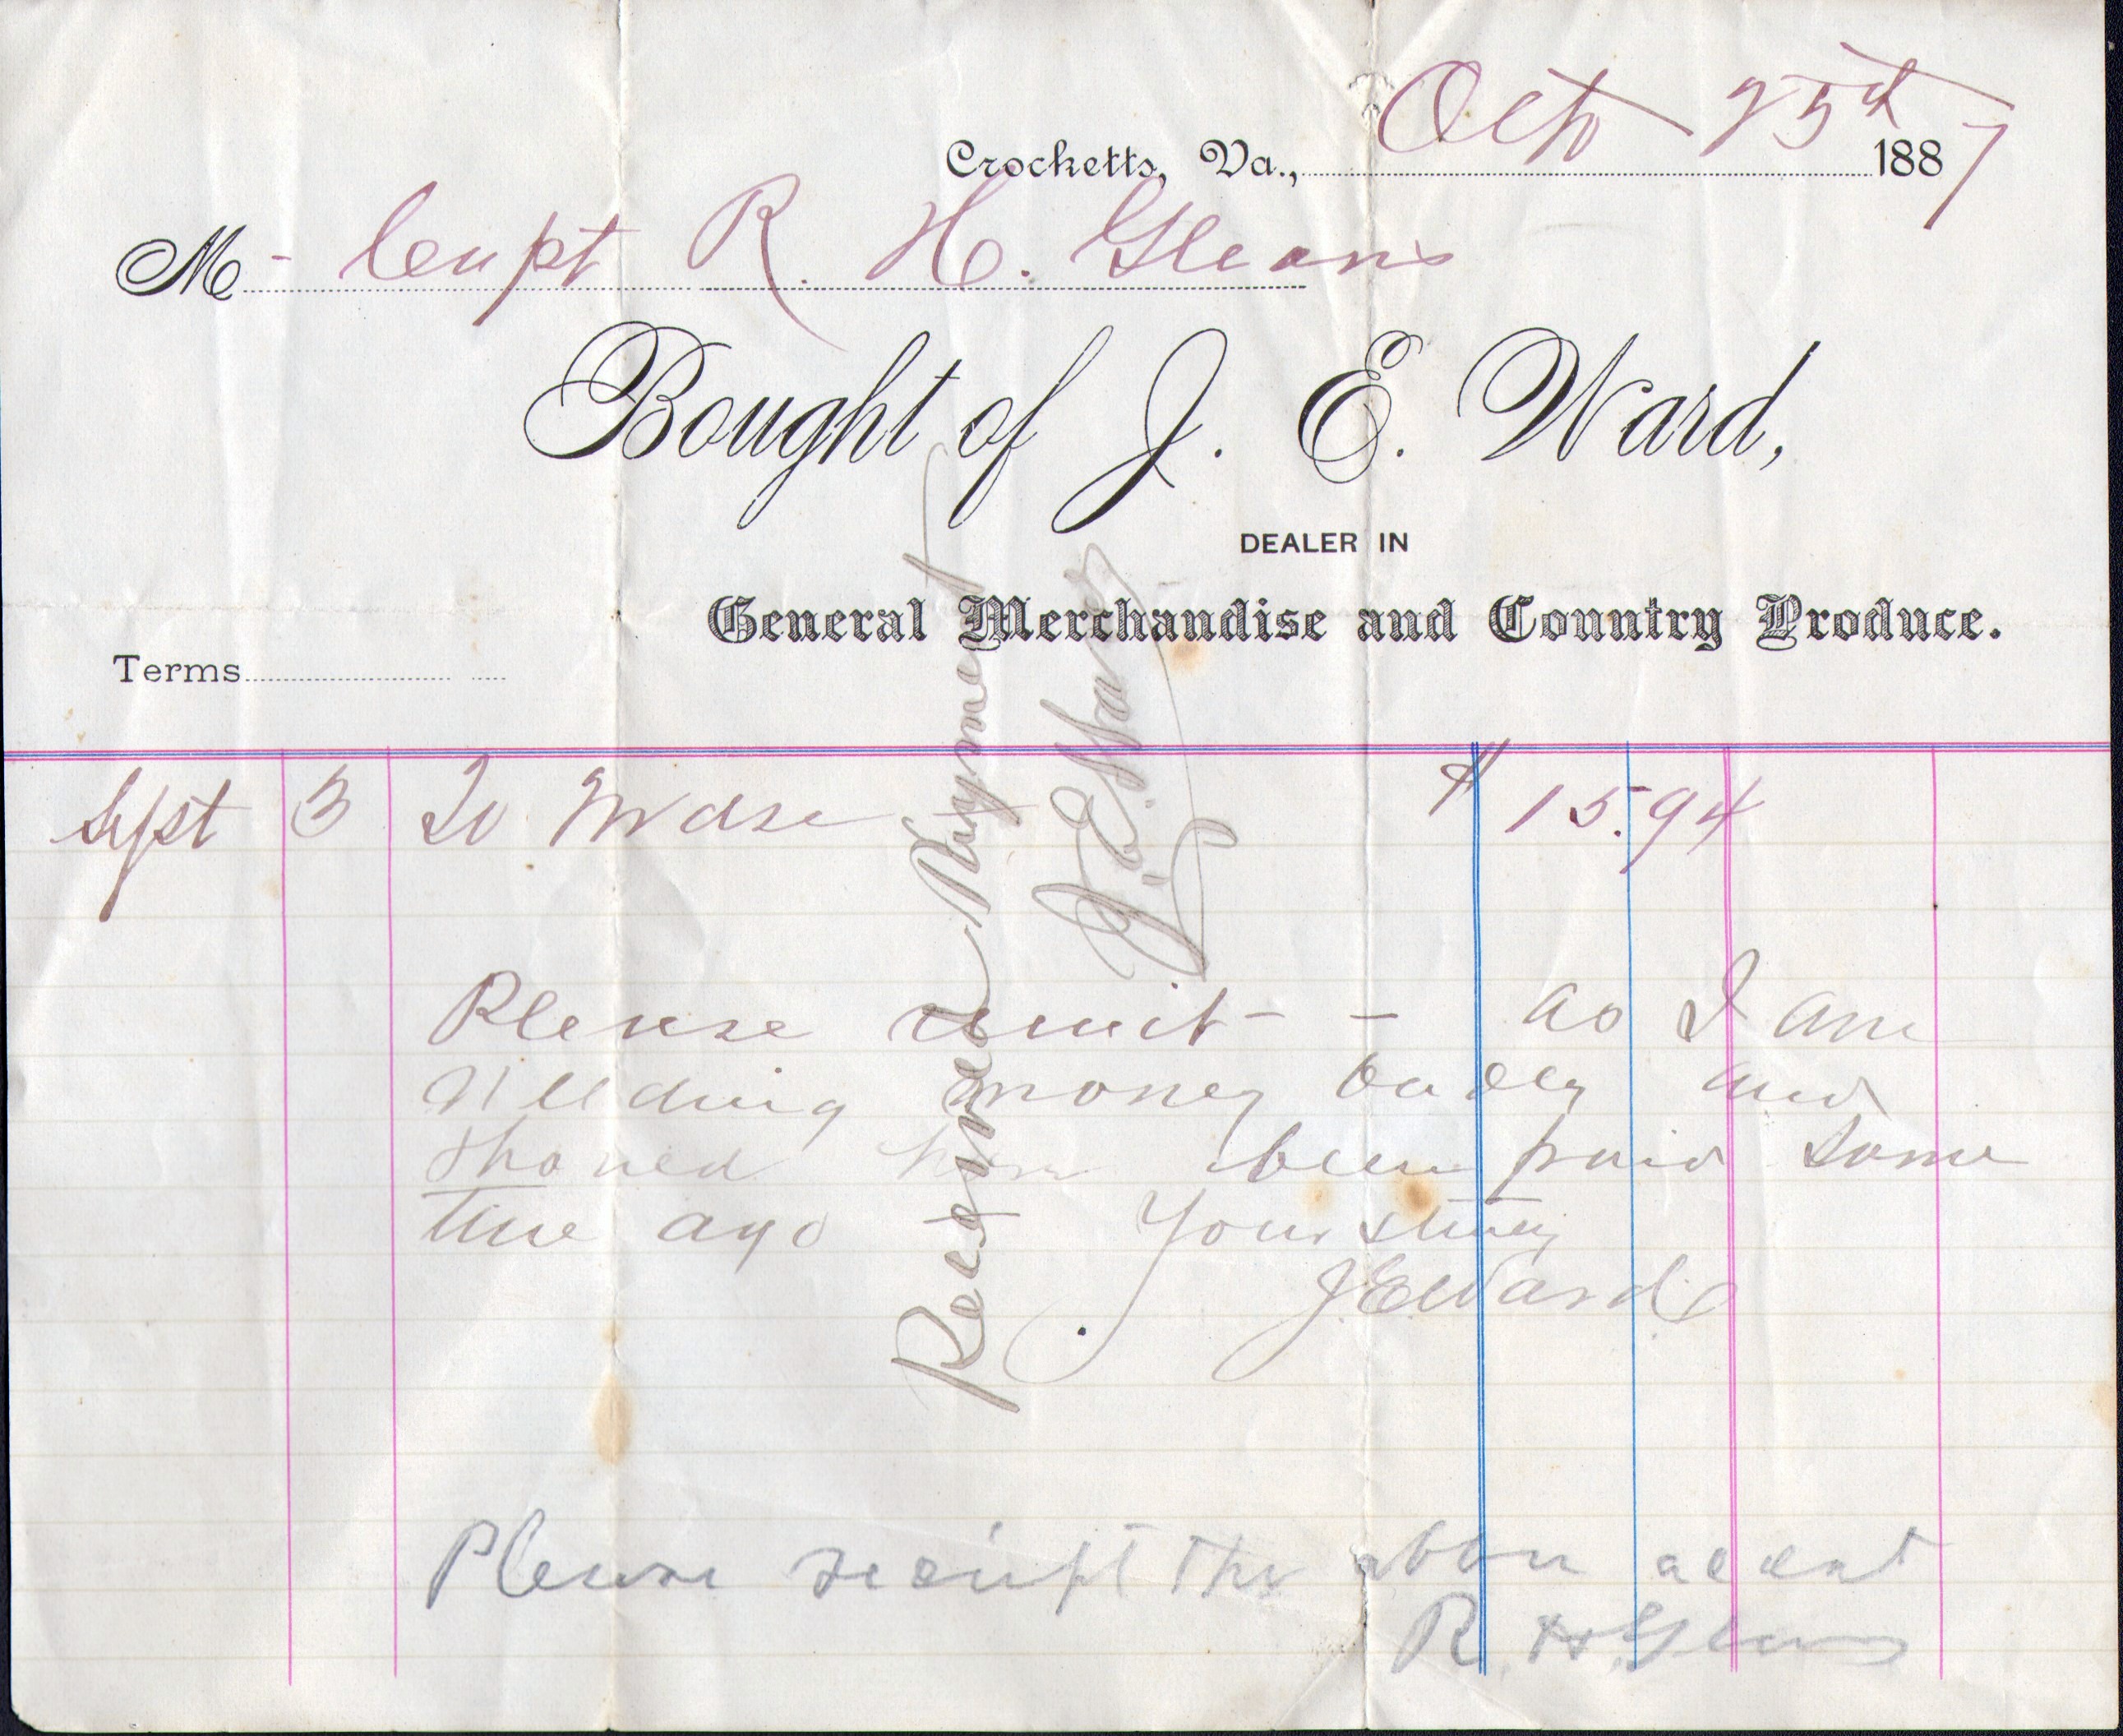 Crocketts, Va., Octo 25th 1887
M - Capt R. H. Gleaves
Bought of J. E. Ward,
DEALER IN
General Merchandise and Country Produce.
Terms
Sept 3 To Mdse $15.94
Please remit - - as I am
needing money badly and
should have been paid some
time ago Yours truly
J E Ward
Received Payment
J. E. Ward
Please receipt the above
R. H. Gleaves